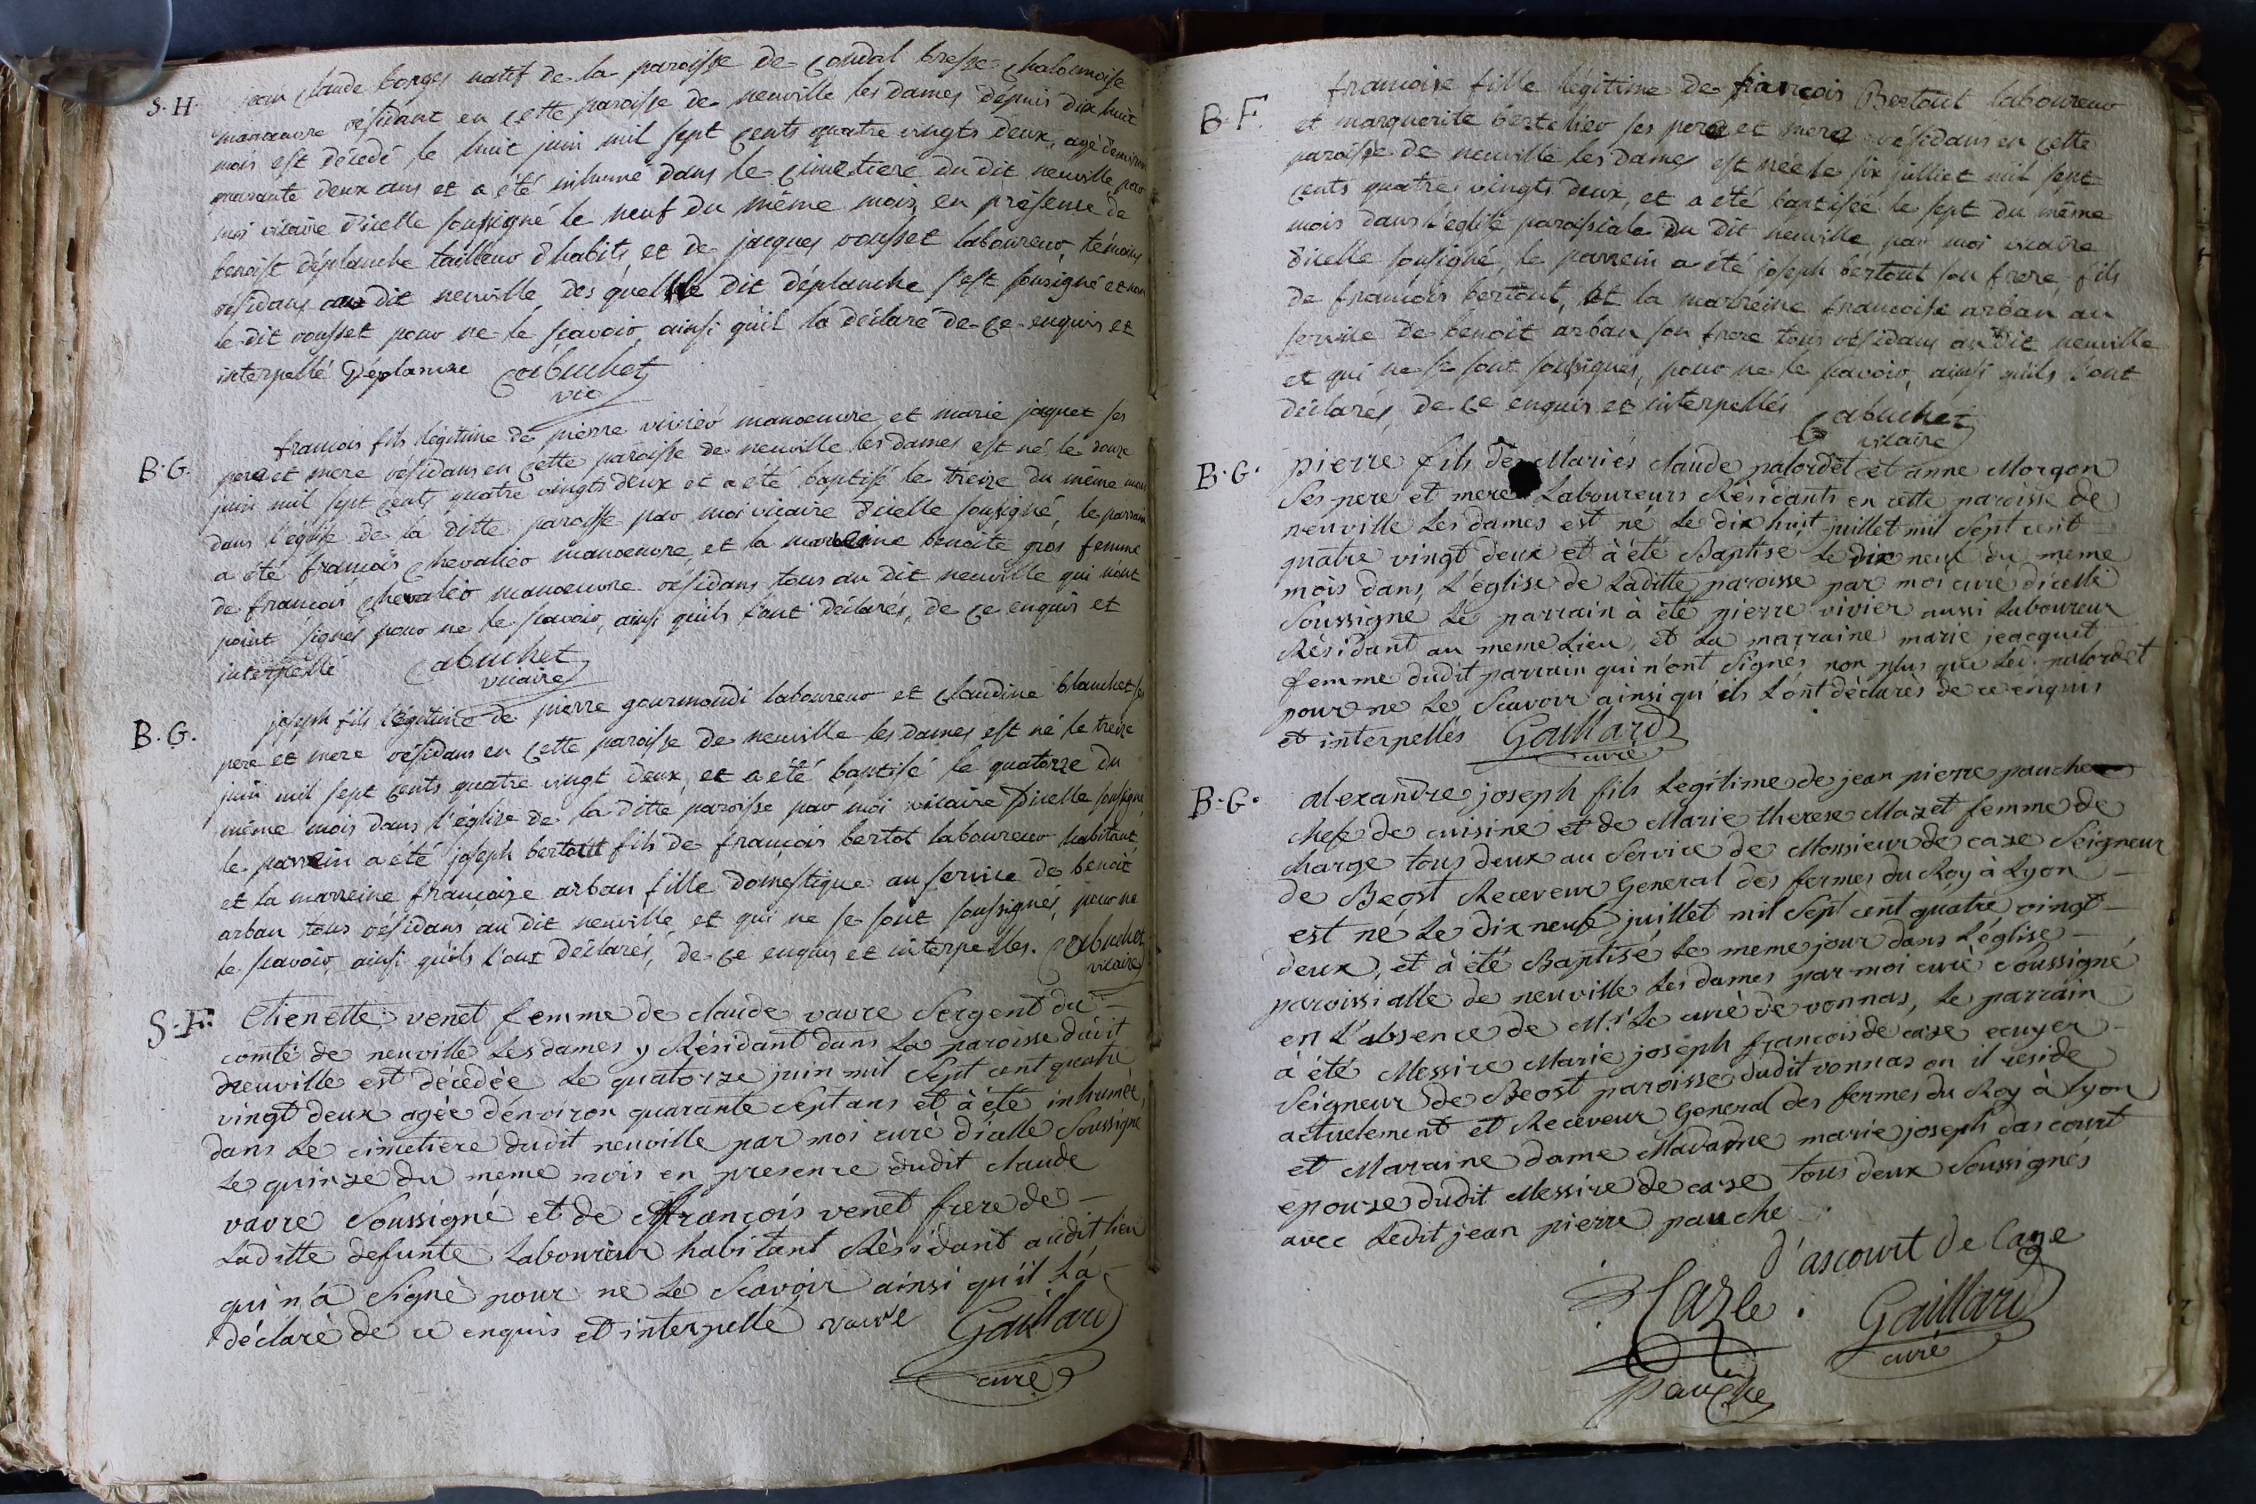 S. H. jean claude borges natif de la paroisse de condal bresse chalonnoise
manoeuvre résidant en cette paroisse de neuville les dames dépuis dix huit
mois est décédé le huit juin mil sept cents quatre vingts deux, agé d'environ
quarante deux ans et a été inhumé dans le cimetiere du dit neuville par
moi vicaire d'icelle soussigné le neuf du même mois, en présence de
benoist déplanche tailleur d'habits, et de jacques rousset laboureur, témoins
résidans au dit neuville, des quels le dit déplanche s'est sousigné et non
le dit rousset pour ne le scavoir ainsi qu'il la déclaré de ce enquis et
interpellé Déplanche Cabuchet
vic
B. G. francois fils légitime de pierre vivier manoeuvre et marie jaquet ses
pere et mere résidans en cette paroisse de neuville les dames est né le douze
juin mil sept cents quatre vingts deux et a été baptisé le treize du même mois
dans l'église de la ditte paroisse par moi vicaire d'icelle sousigné, le parrain
a été francois chevalier manoeuvre, et la marreine benoite gros femme
de francois chevalier manoeuvre résidans tous au dit neuville qui n'ont
point signés pour ne le scavoir, ainsi qu'ils l'ont déclarés, de ce enquis et
interpellé Cabuchet
vicaire
B. G. joseph fils légitime de pierre gourmondi laboureur et claudine blanchet ses
pere et mere résidans en cette paroisse de neuville les dames est né le treize
juin mil sept cents quatre vingt deux, et a été baptisé le quatorze du
même mois dans l'église de la ditte paroisse par moi vicaire d'icelle sousigné,
le parrein a été joseph bertout fils de francois bertot laboureur habitant,
et la marreine francoise arban fille domestique au service de benoit
arban tous résidans au dit neuville, et qui ne se sont soussignés, pour ne
le scavoir, ainsi qu'ils l'ont déclarés, de ce enquis et interpellés. Cabuchet
vicaire
S. F. Etienette venet femme de claude vavre Sergent du
comté de neuville Les dames y Résidant dans La paroisse dudit
neuville est décedée Le quatorze juin mil Sept cent quatre
vingt deux agée d'environ quarante Sept ans et à été inhumée
dans Le cimetiere dudit neuville par moi curé d'icelle Soussigné
Le quinze du meme mois en presence dudit claude
vavre Soussigné et de francois venet frere de
Laditte defunte Laboureur habitant Résidant audit lieu
qui n'à Signé pour ne Le Scavoir ainsi qu'il L'à
déclaré de ce enquis et interpellé vavre Gaillard
curé
B. F. francoise fille légitime de francois Bertout laboureur
et marguerite bertelier ses pere et mere résidans en cette
paroisse de neuville les dames est née le six juilliet mil sept
cents quatre vingts deux, et a été baptisée le sept du même
mois dans l'église paroissiale du dit neuville par moi vicaire
d'icelle sousigné, le parrein a été joseph bertout son frere, fils
de francois bertout, et la marreine francoise arban au
service de benoit arban son frere tous résidans au dit neuville
et qui ne se sont soussignés, pour ne le scavoir, ainsi qu'ils l'ont
déclarés, de ce enquis et interpellés Cabuchet
vicaire
B. G. pierre fils des Mariés claude palordet et anne Morgon
Ses pere et mere Laboureurs Résidants en cette paroisse de
neuville Les dames est né Le dix huit juillet mil Sept cent
quatre vingt deux et à été Baptisé Le dix neuf du meme
mois dans L'église de Laditte paroisse par moi curé d'icelle
Soussigné Le parrain a été pierre vivier aussi Laboureur
Résidant au meme Lieu, et La marraine marie jeacquet
femme dudit parrain qui n'ont Signés non plus que Led. palordet
pour ne Le Scavoir ainsi qu'ils L'ont déclarés de ce enquis
et interpellés Gaillard
curé
B. G. alexandre joseph fils Legitime de jean pierre pauche
chef de cuisine et de Marie therese Mazet femme de
charge tous deux au Service de Monsieur de caze Seigneur
de Beost Receveur General des fermes du Roy à Lyon
est né Le dix neuf juillet mil Sept cent quatre vingt
deux, et à été Baptisé Le meme jour dans L'église
paroissialle de neuville Les dames par moi curé Soussigné
en L'absence de Mr. Le curé de vonnas, Le parrain
à été Messire Marie joseph francois de caze ecuyer
Seigneur de Beost paroisse dudit vonnas ou il reside
actuelement et Receveur General des fermes du Roy à Lyon
et Maraine dame Madame marie joseph dascourt
epouze dudit Messire de caze tous deux Soussignés
avec Ledit jean pierre pauche
d'ascourt de Caze
Cazle. Gaillard
curé
pauche